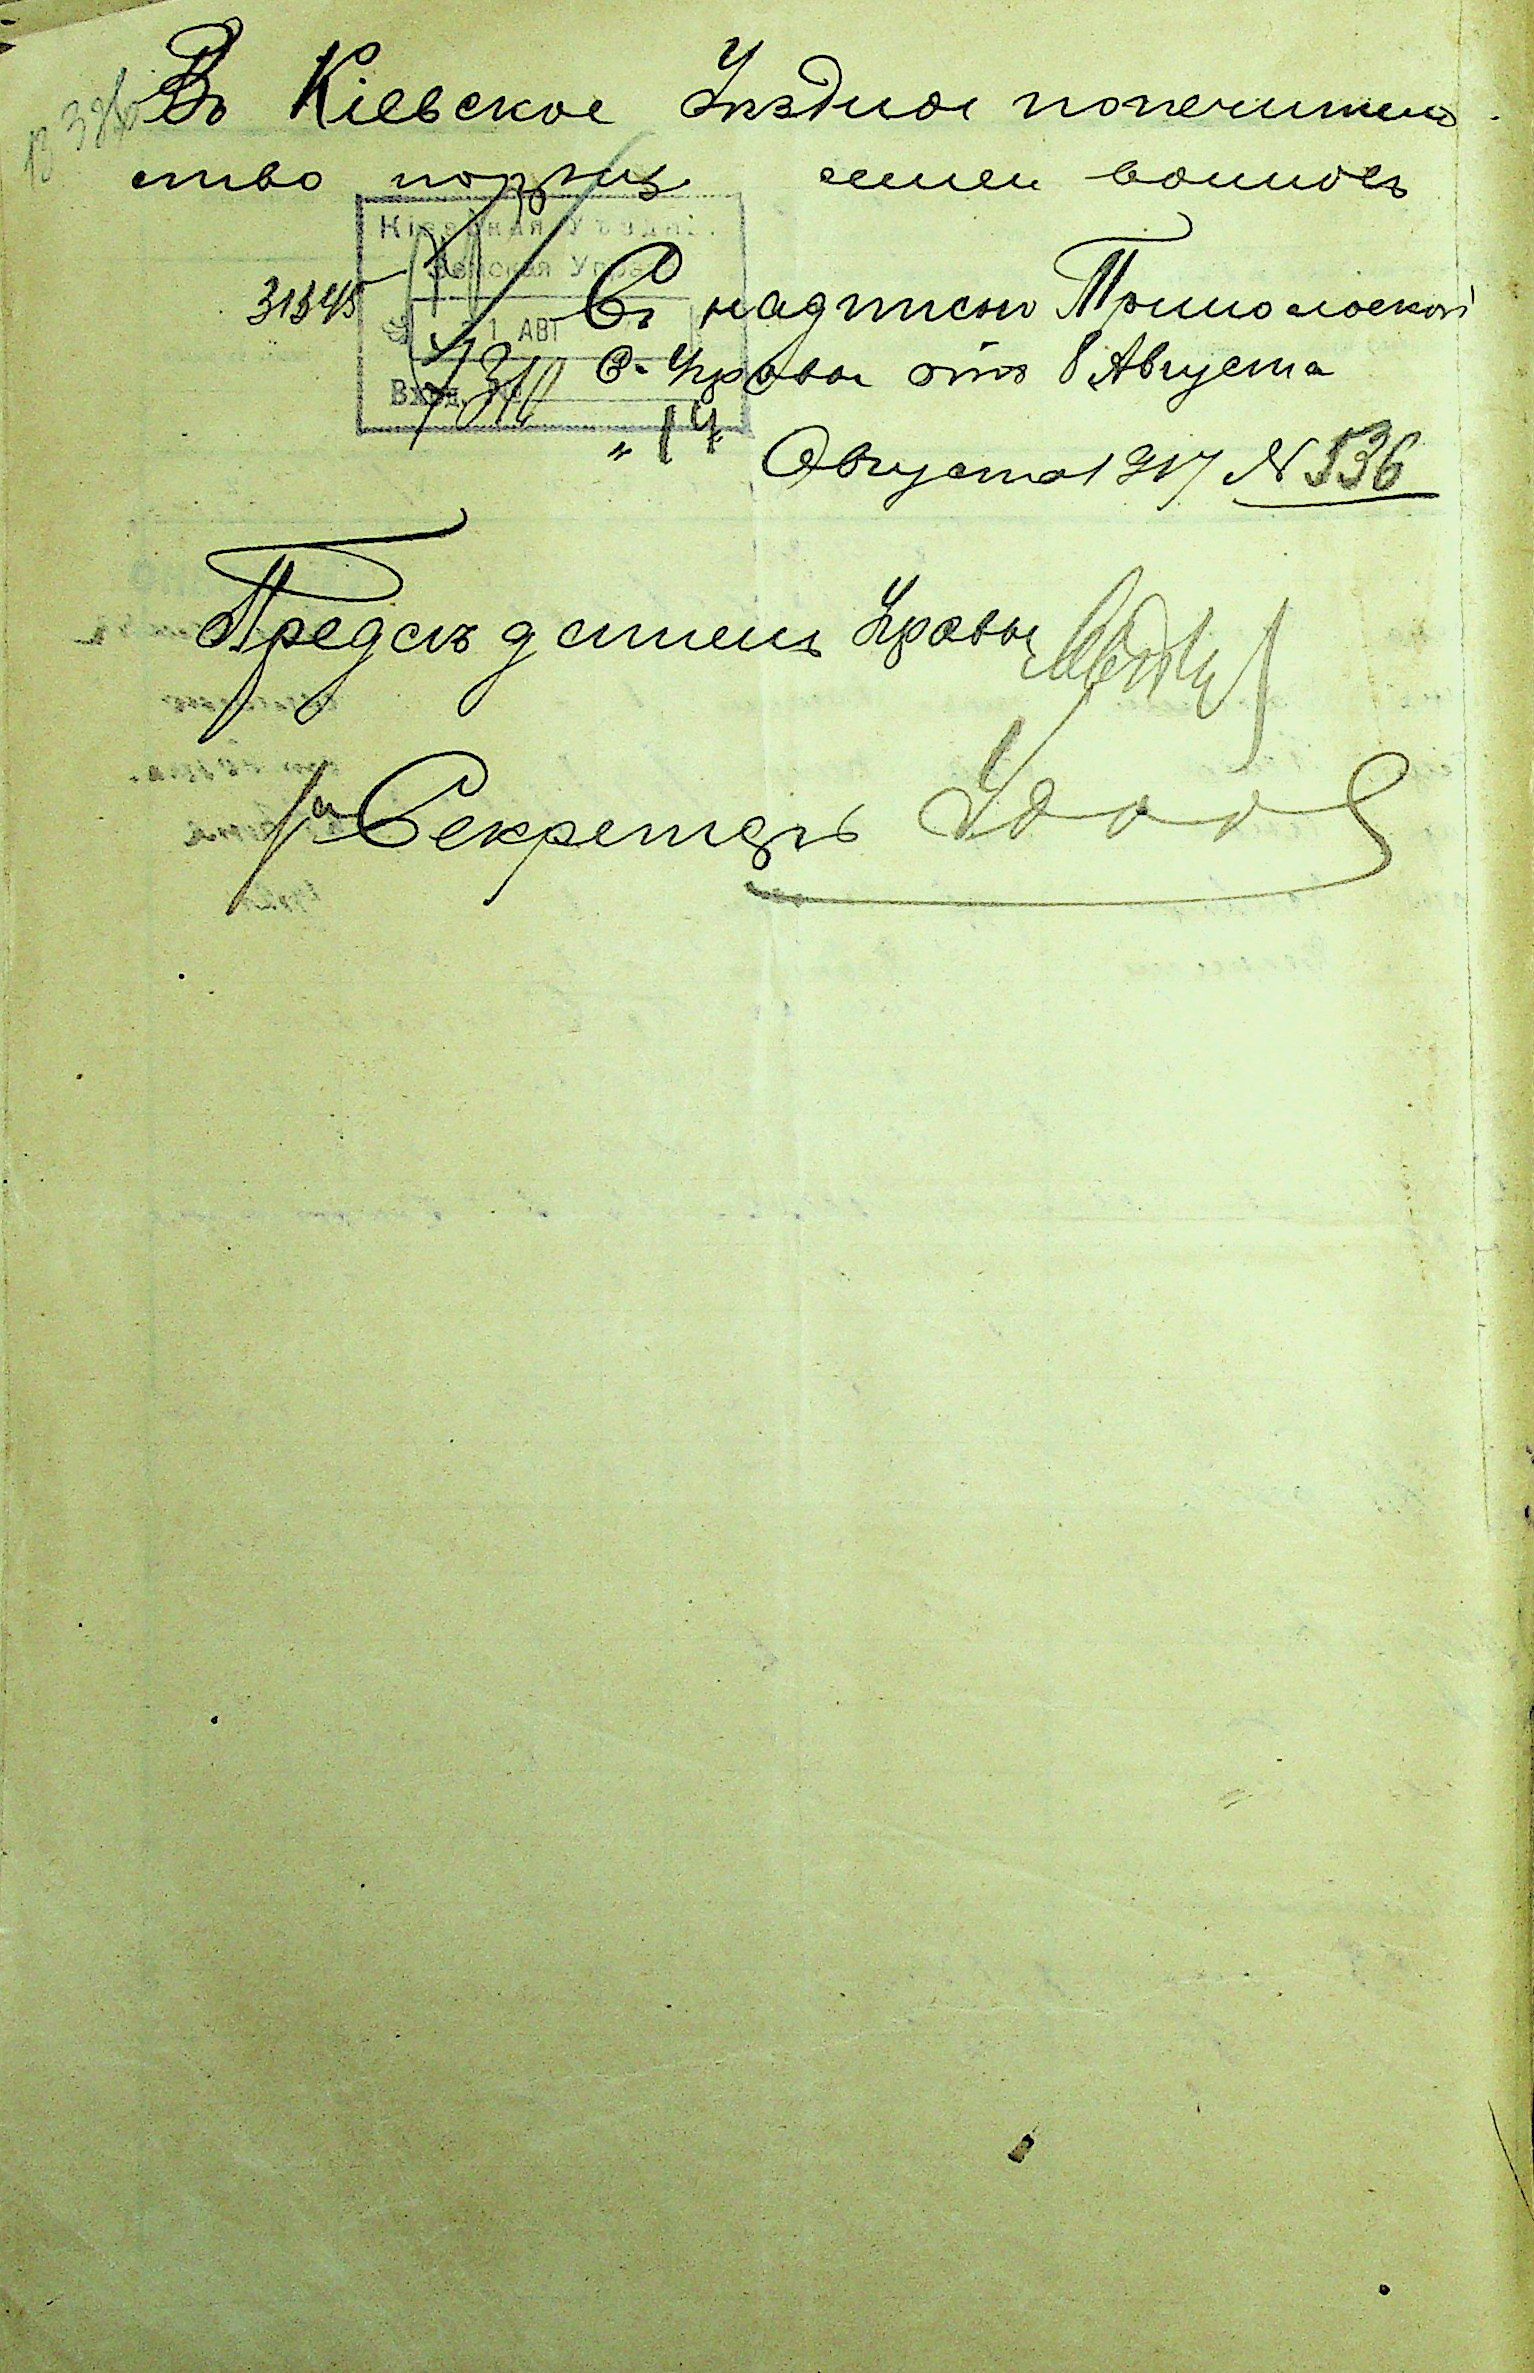 Въ Кіевское Уѣздное попечитель
ство по призр семей воиновъ
Кіевская Уѣздн.
Земская Управа
31345
1 АВГ
Вход. №
Съ надписью Трипольской
С. Управы отъ 8 Августа
"14" Августа 1917 N 536
Предсѣдатель Управы
Секретарь